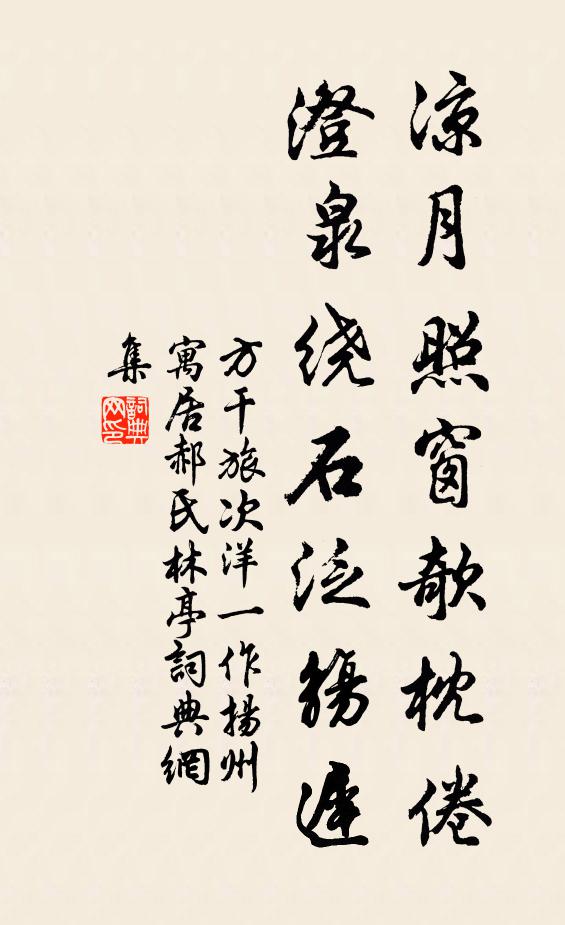 凉月照窗欹枕倦
澄泉绕石泛觞遲
方干旅次洋一作揚州
寓居郝氏林亭詞典網
集
詞典
网印